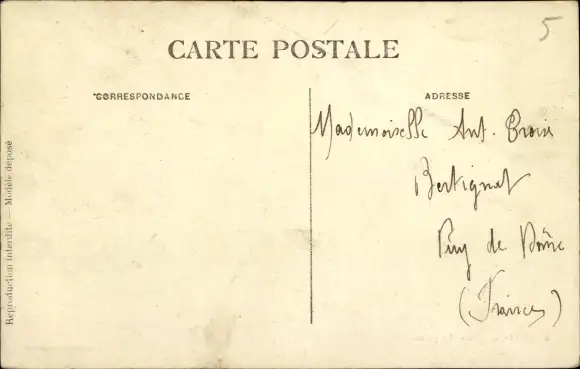 5
CARTE POSTALE
CORRESPONDANCE
ADRESSE
Mademoiselle Ant.
Bertignat
Puy de Dôme
(France)
Reproduction interdite — Modèle déposé